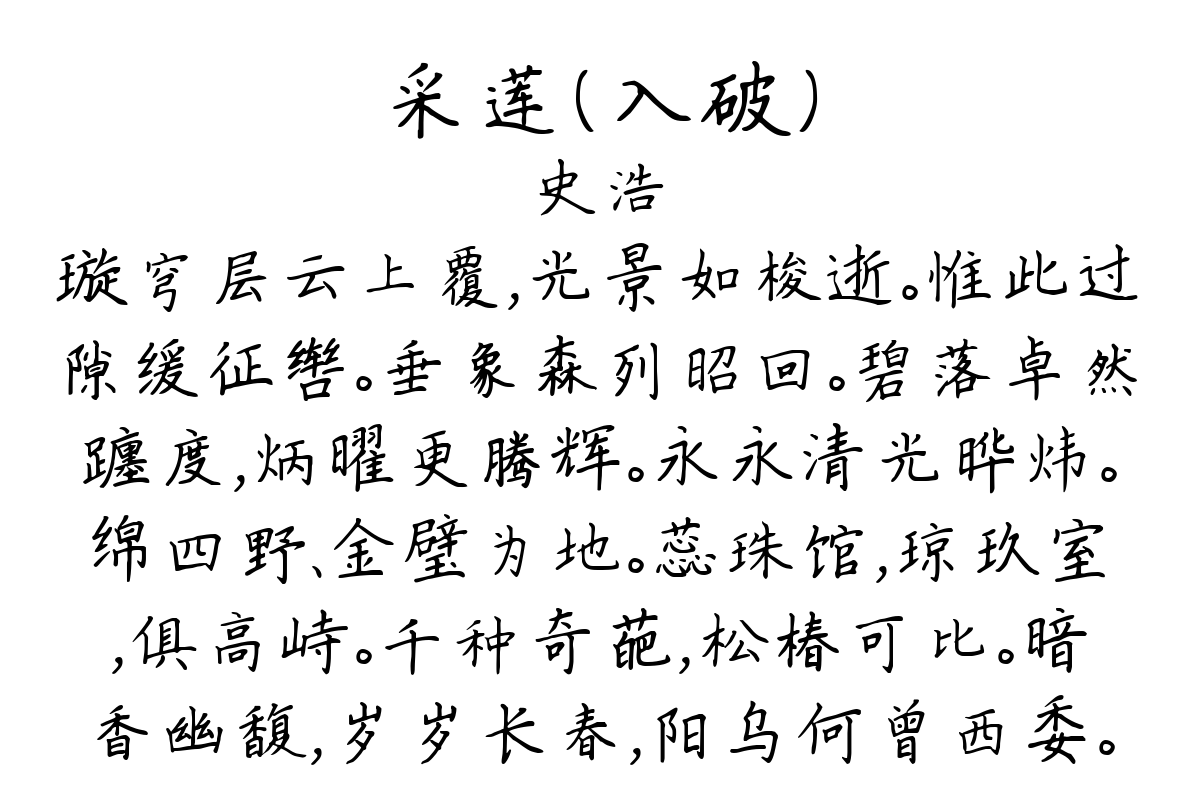 采莲(入破)
史浩
璇穹层云上覆,光景如梭逝。惟此过
隙缓征辔。垂象森列昭回。碧落卓然
躔度,炳曜更腾辉。永永清光晔炜。
绵四野、金璧为地。蕊珠馆,琼玖室
,俱高峙。千种奇葩,松椿可比。暗
香幽馥,岁岁长春,阳乌何曾西委。